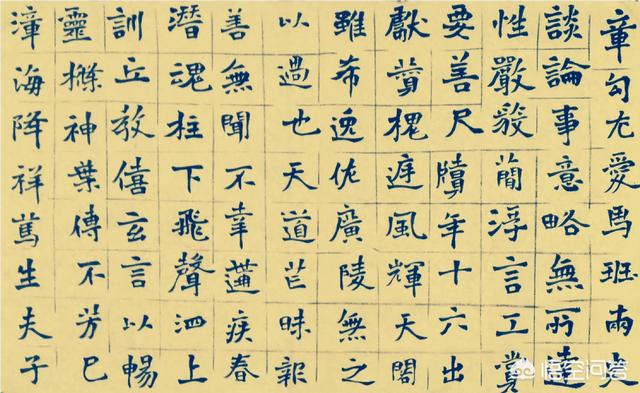 章句尤愛馬班兩史
談論事意略無所達
性嚴毅簡浮言工賞
要善尺牘年十六出
獻槐庭風輝天閣
雖希逸佐廣陵無之
以過也天道芒昧報
善無聞不幸遘疾春
潛魂柱下飛聲泗上
訓丘教僖玄言以暢
靈神葉傳不芳已
漳海降祥篤生夫子
悟空问答